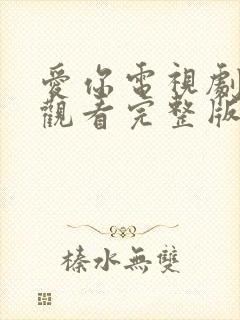 愛你電視劇
觀看完整版
榛水無雙